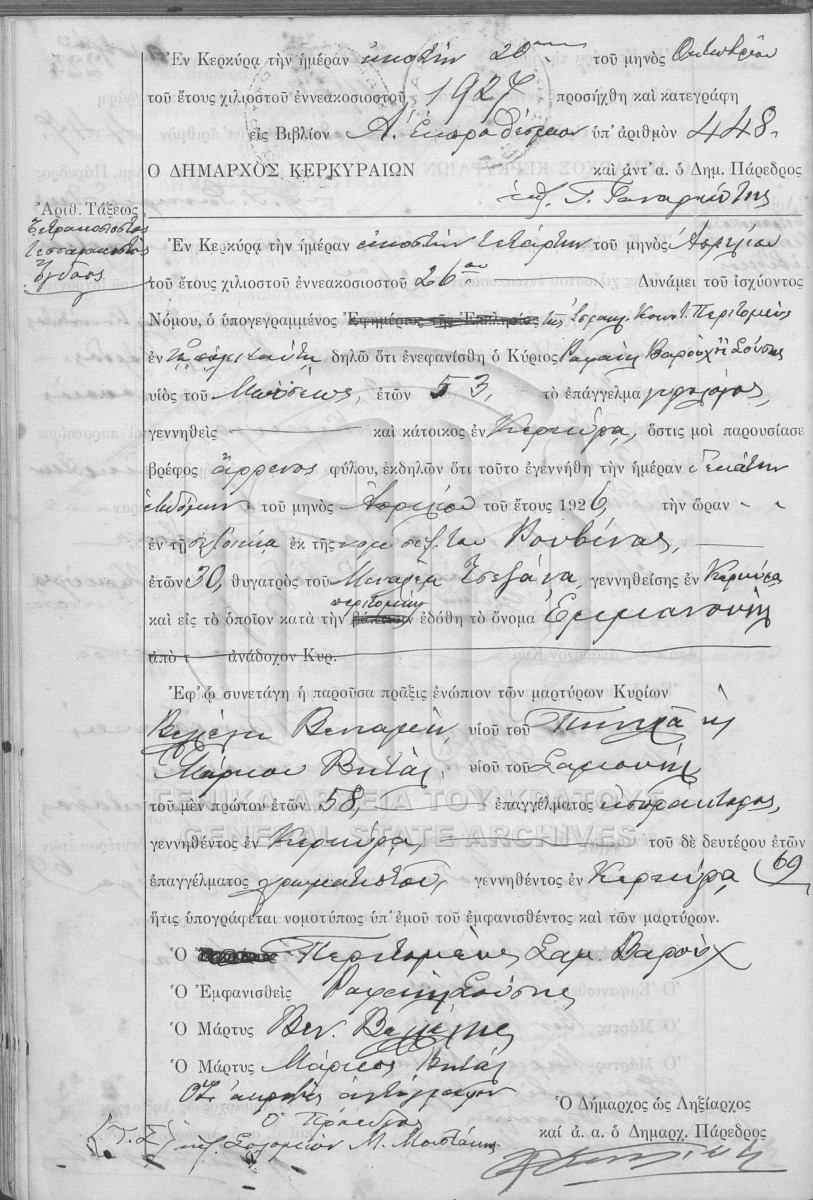 Ἐν Κερκύρᾳ τὴν ἡμέραν εἰκοστὴν 20ην τοῦ μηνὸς Ὀκτωβρίου
τοῦ ἔτους χιλιοστοῦ ἐννεακοσιοστοῦ 1927 προσήχθη καὶ κατεγράφη
εἰς Βιβλίον Α. Ἐκπροθέσμων ὑπ' ἀριθμὸν 448
Ο ΔΗΜΑΡΧΟΣ ΚΕΡΚΥΡΑΙΩΝ καὶ ἀντ' α. ὁ Δημ. Πάρεδρος
Ἀριθ. Τάξεως
Τετρακοσιοστὸς
τεσσαρακοστὸς
ὄγδοος
Ἐν Κερκύρᾳ τὴν ἡμέραν εἰκοστὴν τετάρτην τοῦ μηνὸς Ἀπριλίου
τοῦ ἔτους χιλιοστοῦ ἐννεακοσιοστοῦ 26ου Δυνάμει τοῦ ἰσχύοντος
Νόμου, ὁ ὑπογεγραμμένος Ἐφημέριος τῆς Ἐκκλησίας τῆς Ἰσραηλ. Κοινότ. Περιτομεὺς
ἐν τῇ πόλει ταύτῃ δηλῶ ὅτι ἐνεφανίσθη ὁ Κύριος Ραφαὴλ Βαροὺχ ἢ Σούσης
υἱὸς τοῦ Μωϋσέως, ἐτῶν 53, τὸ ἐπάγγελμα
γεννηθεὶς καὶ κάτοικος ἐν Κερκύρᾳ, ὅστις μοὶ παρουσίασε
βρέφος ἄρρενος φύλου, ἐκδηλῶν ὅτι τοῦτο ἐγεννήθη τὴν ἡμέραν δεκάτην
ἑβδόμην τοῦ μηνὸς Ἀπριλίου τοῦ ἔτους 1926, τὴν ὥραν
ἐν τῇ οἰκίᾳ ἐκ τῆς νομ. συζ. του Ρουβένας,
ἐτῶν 30, θυγατρὸς τοῦ Μεναχὲμ Τσεζάνα, γεννηθείσης ἐν Κερκύρᾳ
καὶ εἰς τὸ ὁποῖον κατὰ τὴν βάπτισιν περιτομὴν ἐδόθη τὸ ὄνομα Ἐμμανουὴλ
ἀπὸ τ ἀνάδοχον Κυρ.
Ἐφ' ᾧ συνετάγη ἡ παροῦσα πρᾶξις ἐνώπιον τῶν μαρτύρων Κυρίων
Βελέλη Βενιαμὶν, υἱοῦ τοῦ
Μάρκου Βιτάλ, υἱοῦ τοῦ Σαμουὴλ
τοῦ μὲν πρώτου ἐτῶν 58, ἐπαγγέλματος εἰσπράκτορος,
γεννηθέντος ἐν Κερκύρᾳ, τοῦ δὲ δευτέρου ἐτῶν 69
ἐπαγγέλματος γραμματιστοῦ, γεννηθέντος ἐν Κερκύρᾳ
ἥτις ὑπογράφεται νομοτύπως ὑπ' ἐμοῦ τοῦ ἐμφανισθέντος καὶ τῶν μαρτύρων.
ΓΕΝΙΚΑ ΑΡΧΕΙΑ ΤΟΥ ΚΡΑΤΟΥΣ
GENERAL STATE ARCHIVES
Ὁ Περιτομεὺς Σαμ. Βαροὺχ
Ὁ Ἐμφανισθεὶς Ραφαὴλ Σούσης
Ὁ Μάρτυς Βεν. Βελέλης
Ὁ Μάρτυς Μάρκος Βιτάλ
Ὅτι ἀκριβὲς ἀντίγραφον
Ὁ Πρόεδρος
(Τ. Σ.) Σολομὼν Μ. Μουστάκης
Ὁ Δήμαρχος ὡς Ληξίαρχος
καὶ ἀ. α. ὁ Δημαρχ. Πάρεδρος